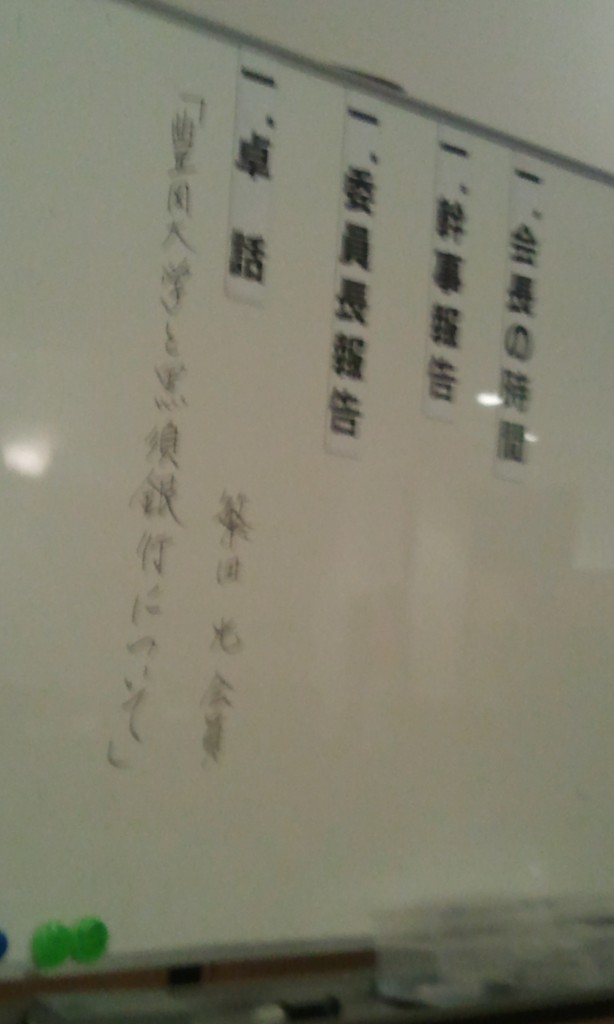 一.会長の時間
一.幹事報告
一.委員長報告
一.卓 話
繁田 光 会員
「豊岡大学と黒須銀行について」